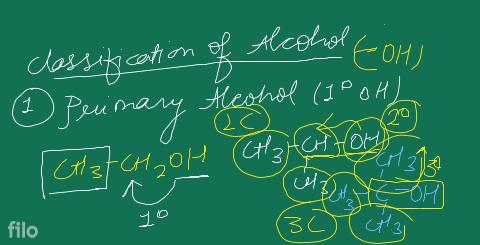 Classification of Alcohol (-OH)
① Primary Alcohol (1° OH)
2C 2°
CH3-CH2OH
1°
CH3-CH-OH
CH3
3C
CH3 3°
CH3-C-OH
CH3
filo